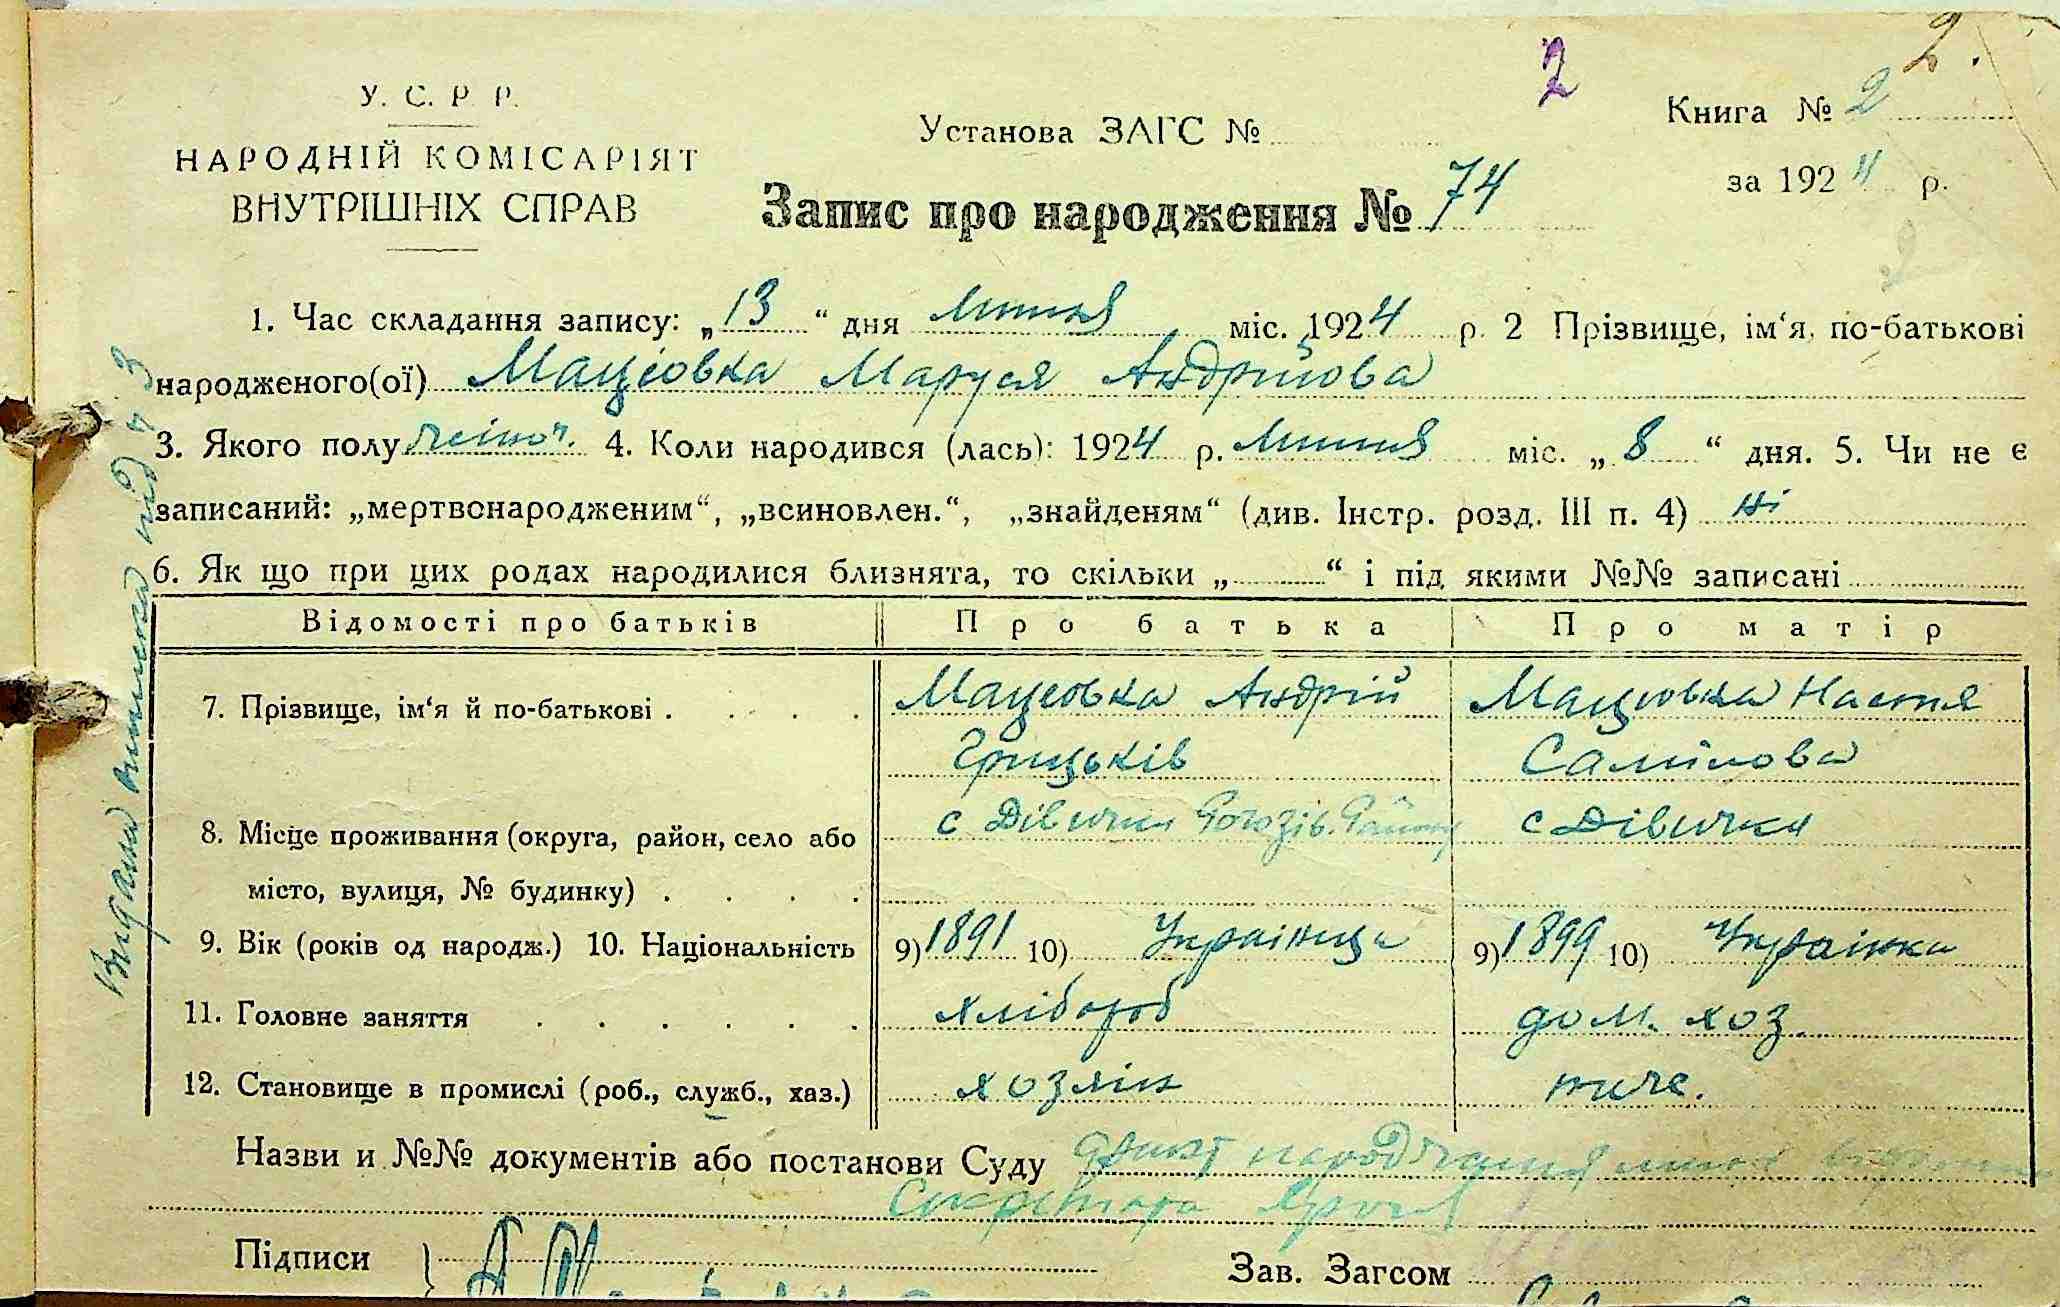 2.
2
У. С. Р. Р.
НАРОДНІЙ КОМІСАРІЯТ
ВНУТРІШНІХ СПРАВ
Установа ЗАГС №
Книга № 2
за 1924 р.
Запис про народження № 74
1. Час складання запису: „13“ дня липня міс. 1924 р. 2 Прізвище, ім‘я, по-батькові
народженого(ої) Мацієвка Маруся Андрійова
3. Якого полу жіноч. 4. Коли народився (лась): 1924 р. липня міс. „8“ дня. 5. Чи не є
записаний: „мертвонародженим“, „всиновлен.“, „знайденям“ (див. Інстр. розд. III п. 4) ні
6. Як що при цих родах народилися близнята, то скільки „ “ і під якими №№ записані
Відомості про батьків Про батька Про матір
7. Прізвище, ім‘я й по-батькові . . . . Мацієвка Андрій Мацієвка Настя
Грицьків Самійлова
8. Місце проживання (округа, район, село або с Дівички Рогозів. Району с Дівички
місто, вулиця, № будинку) . . . .
9. Вік (років од народж.) 10. Національність 9) 1891 10) Українець 9) 1899 10) Українка
11. Головне заняття . . . . . . хлібороб дом. хоз.
12. Становище в промислі (роб., служб., хаз.) хозяін
Назви и №№ документів або постанови Суду факт народження
Секретаря
Підписи
Зав. Загсом
Видана виписка під ч 3